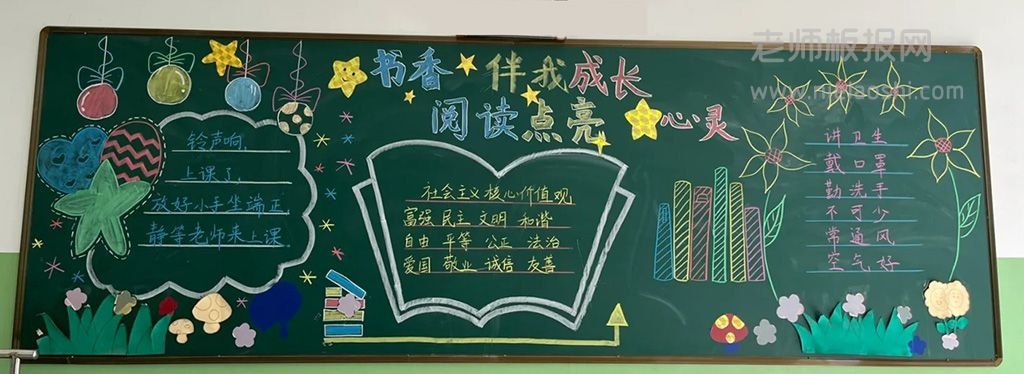 老师板报网
书香 伴我成长
阅读点亮 心灵
铃声响,
上课了,
放好小手坐端正
静等老师来上课
社会主义核心价值观
富强 民主 文明 和谐
自由 平等 公正 法治
爱国 敬业 诚信 友善
讲卫生
戴口罩
勤洗手
不可少
常通风
空气好